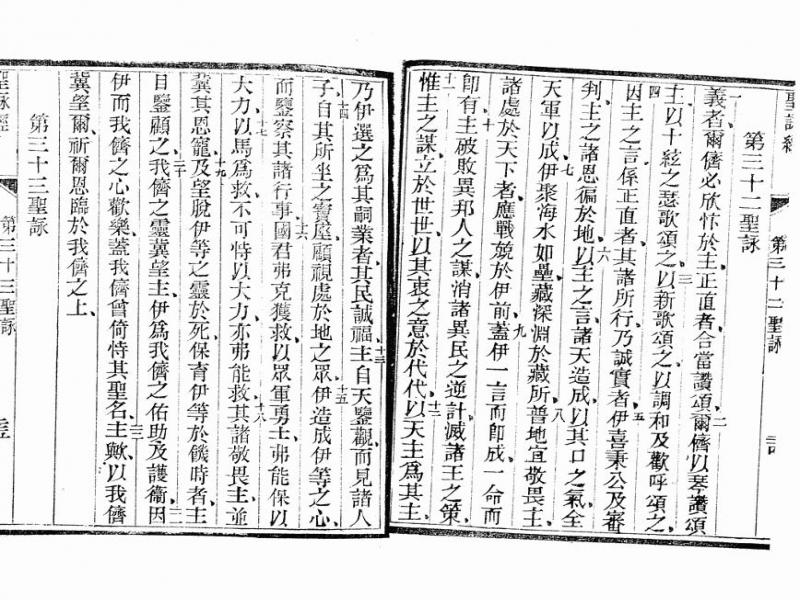 聖詠經 第三十二聖詠
第三十二聖詠
一義者、爾儕必欣忭於主、正直者合當讚頌、二爾儕以琴讚頌
主、以十絃之瑟歌頌之、三以新歌頌之、以調和及歡呼頌之、
四因主之言係正直者、其諸所行乃誠實者、五伊喜秉公及審
判、主之諸恩徧於地、六以主之言諸天造成、以其口之氣全
天軍以成、七伊聚海水如壘、藏深淵於藏所、八普地宜敬畏主、
諸處於天下者、應戰兢於伊前、九蓋伊一言而即成、一命而
即有、十主破敗異邦人之謀、消諸異民之逆計、滅諸王之策、
十一惟主之謀立於世世、以其衷之意於代代、十二以天主爲其主、
乃伊選之爲其嗣業者、其民誠福、十三主自天鑒觀、而見諸人
子、十四自其所坐之寶座、顧視處於地之眾、十五伊造成伊等之心、
而鑒察其諸行事、十六國君弗克獲救以眾軍、勇士弗能保以
大力、十七以馬爲救不可恃、以大力亦弗能救、十八其諸敬畏主、並
冀其恩寵、十九及望脫伊等之靈於死、保育伊等於饑時者、主
目鑒顧之、二十我儕之靈冀望主、伊爲我儕之佑助及護衛、二一因
伊而我儕之心歡樂、蓋我儕曾倚恃其聖名、二二主歟、以我儕
冀望爾、祈爾恩臨於我儕之上、
第三十三聖詠
聖詠經 第三十三聖詠